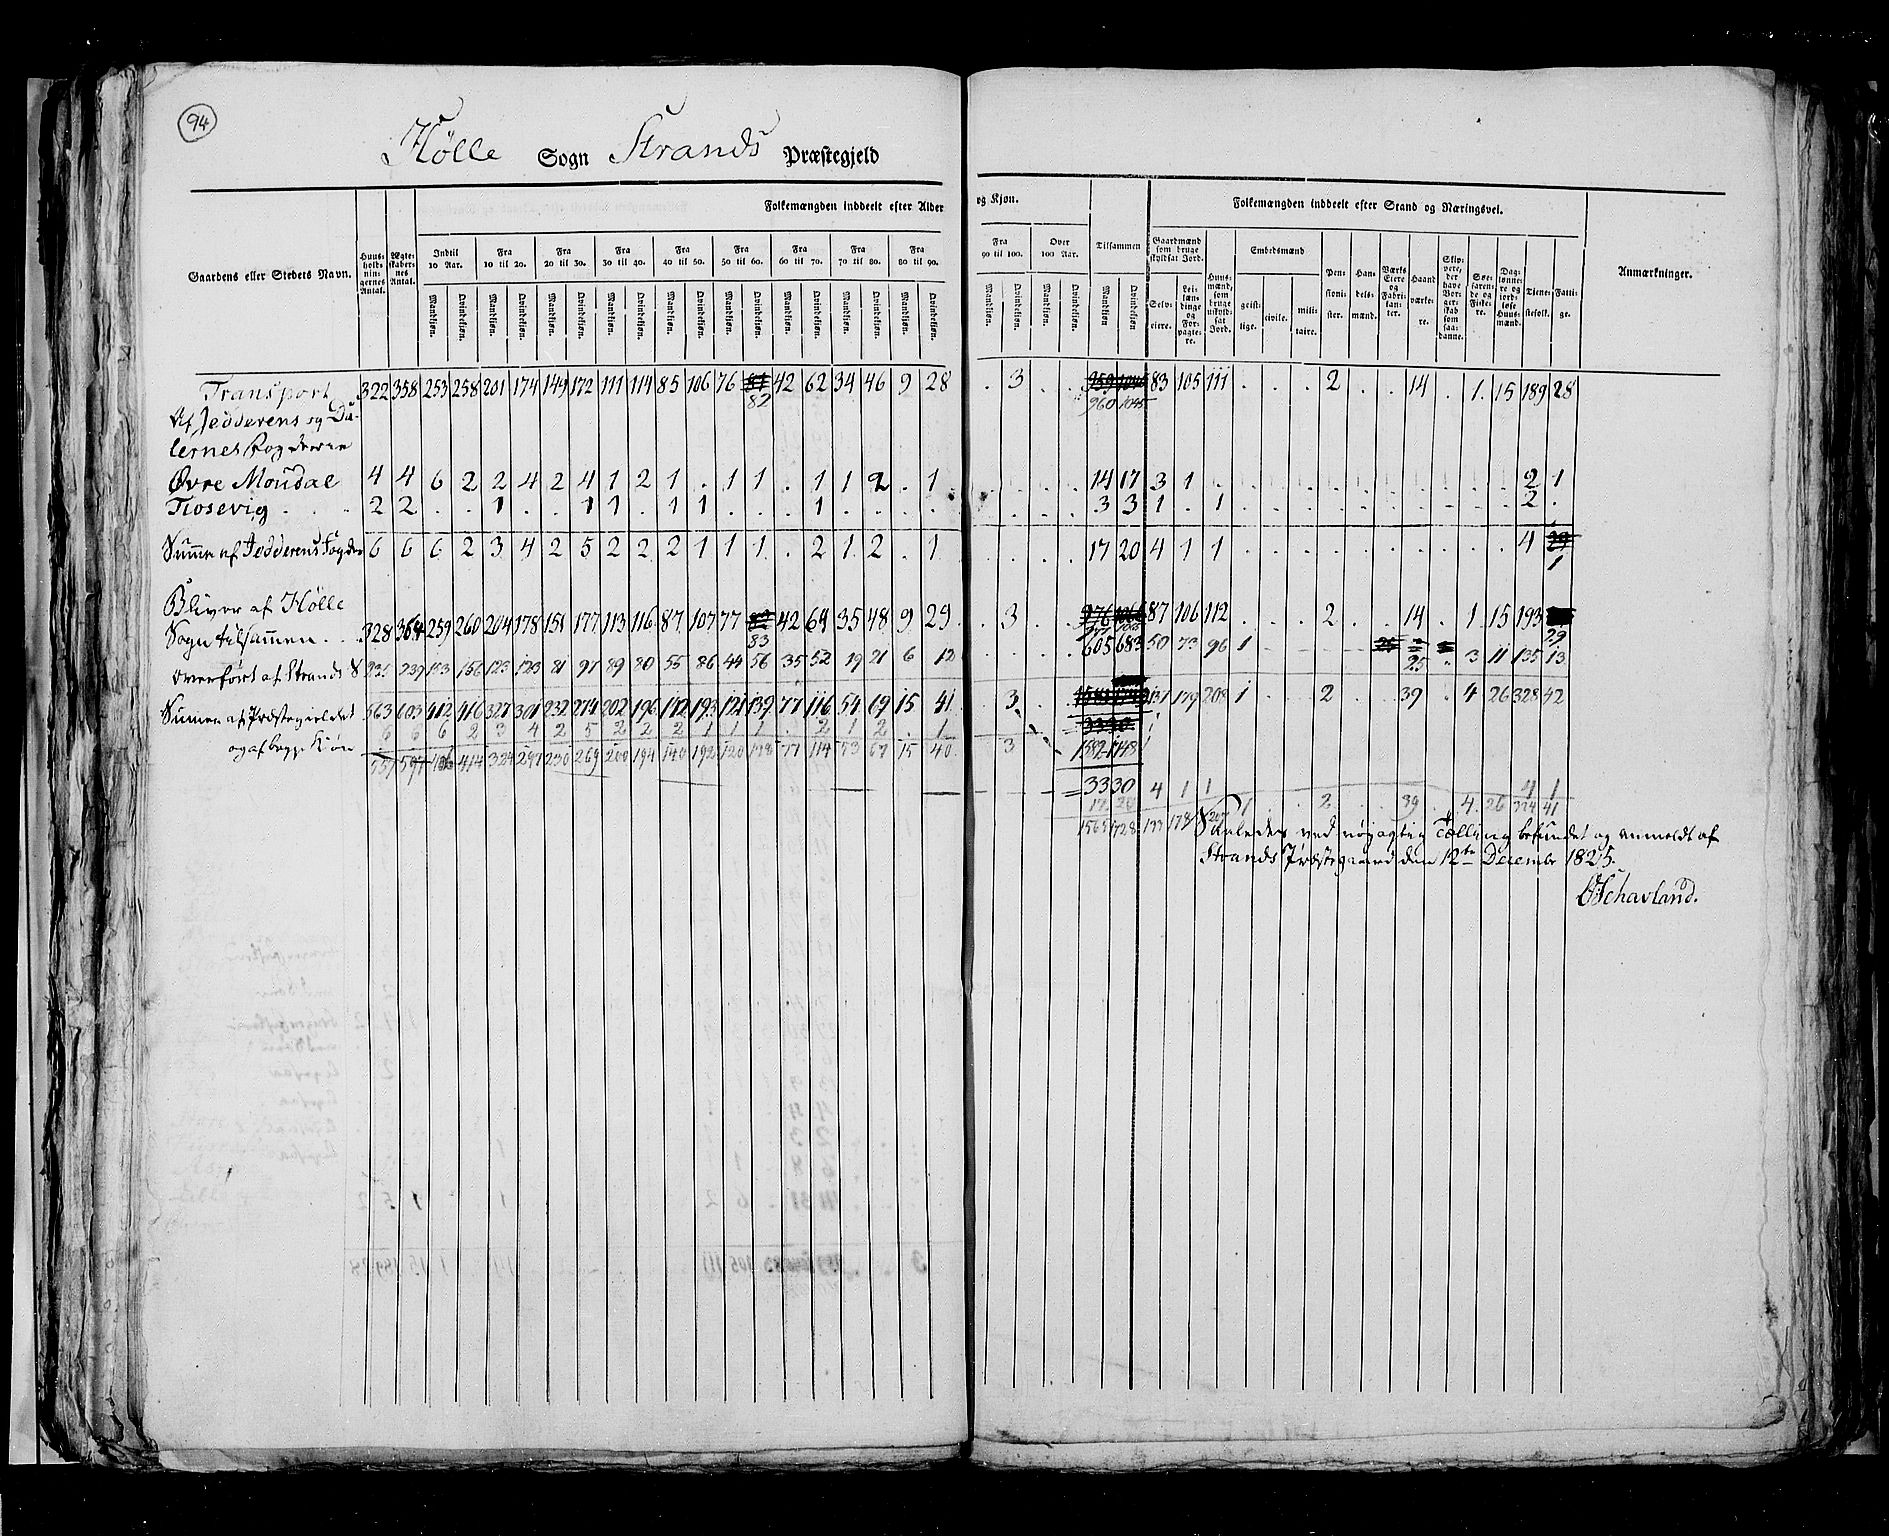 94
Hølle Sogn Strands Præstegjeld
Gaardens eller Stedets Navn.
Huus-holdnin-gernes Antal.
Ægte-skaber-nes Antal.
Folkemængden inddeelt efter Alder og Kjøn.
Indtil 10 Aar.
Fra 10 til 20.
Fra 20 til 30.
Fra 30 til 40.
Fra 40 til 50.
Fra 50 til 60.
Fra 60 til 70.
Fra 70 til 80.
Fra 80 til 90.
Fra 90 til 100.
Over 100 Aar.
Mandkjøn. Qvindekjøn.
Tilsammen
Mandkjøn Qvindekjøn
Folkemængden inddeelt efter Stand og Næringsvei.
Gaardmænd som bruge skyldsat Jord.
Selv-eiere.
Lei-læn-dinge og For-pagte-re.
Huus-mænd, som bruge uskyld-sat Jord.
Embedsmænd
geist-lige. civile. mili-taire.
Pen-sioni-ster.
Han-dels-mænd.
Værks Eiere og Fabri-kan-ter.
Haand værke-re.
Skip-pere, der have Bor-ger-skab som saa-danne.
Søe-farende og Fiske-re.
Dag-lønne-re og jord-løse Huus-mænd.
Tjene-stefolk.
Fatti-ge.
Anmærkninger.
Transport 322 358 253 258 201 174 149 172 111 114 85 106 76 82 42 62 34 46 9 28 . 3 . . 960 1045 83 105 111 . . . 2 . . 14 . 1 15 189 28
Af Jedderens og Da-
lernes Fogderie
Øvre Moudal 4 4 6 2 2 4 2 4 1 2 1 . 1 1 . 1 1 2 . 1 . . . . 14 17 3 1 . . . . . . . . . . . 2 1
Tiosevig 2 2 . . 1 . . 1 1 . 1 1 . . . 1 . . . . . . . . 3 3 1 . 1 . . . . . . . . . . 2 .
Summe af Jedderens Fogderie 6 6 6 2 3 4 2 5 2 2 2 1 1 1 . 2 1 2 . 1 . . . . 17 20 4 1 1 . . . . . . . . . . 4 1
Bliver af Hølle
Sogn tilsammen 328 364 259 260 204 178 151 177 113 116 87 107 77 83 42 64 35 48 9 29 . 3 . . 87 106 112 . . . 2 . . 14 . 1 15 193 29
Overført af Strands S 235 239 153 156 123 123 81 97 89 80 55 86 44 56 35 52 19 21 6 12 . . . . 605 683 50 73 96 1 25 . 3 11 135 13
Summa af Præstegieldet 563 603 412 416 327 301 232 274 202 196 142 193 121 139 77 116 54 69 15 41 . 3 137 179 208 1 . . 2 . . 39 . 4 26 328 42
og af begge Kiøn 6 6 6 2 3 4 2 5 2 2 2 1 1 1 . 2 1 2 . 1
557 597 406 414 324 297 230 269 200 194 140 192 120 138 77 114 53 67 15 40 . 3 1582 1748
3330 4 1 1 4 1
17 20
1565 1728 133 178 207 1 . . 2 . . 39 . 4 26 324 41
Saaledes ved nøyagtig Tælling befundet og anmeldt af
Strands Præstegaard den 12te Decembr 1825.